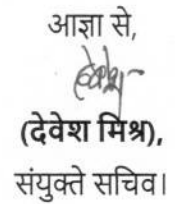 आज्ञा से,
(देवेश मिश्र),
संयुक्ते सचिव।